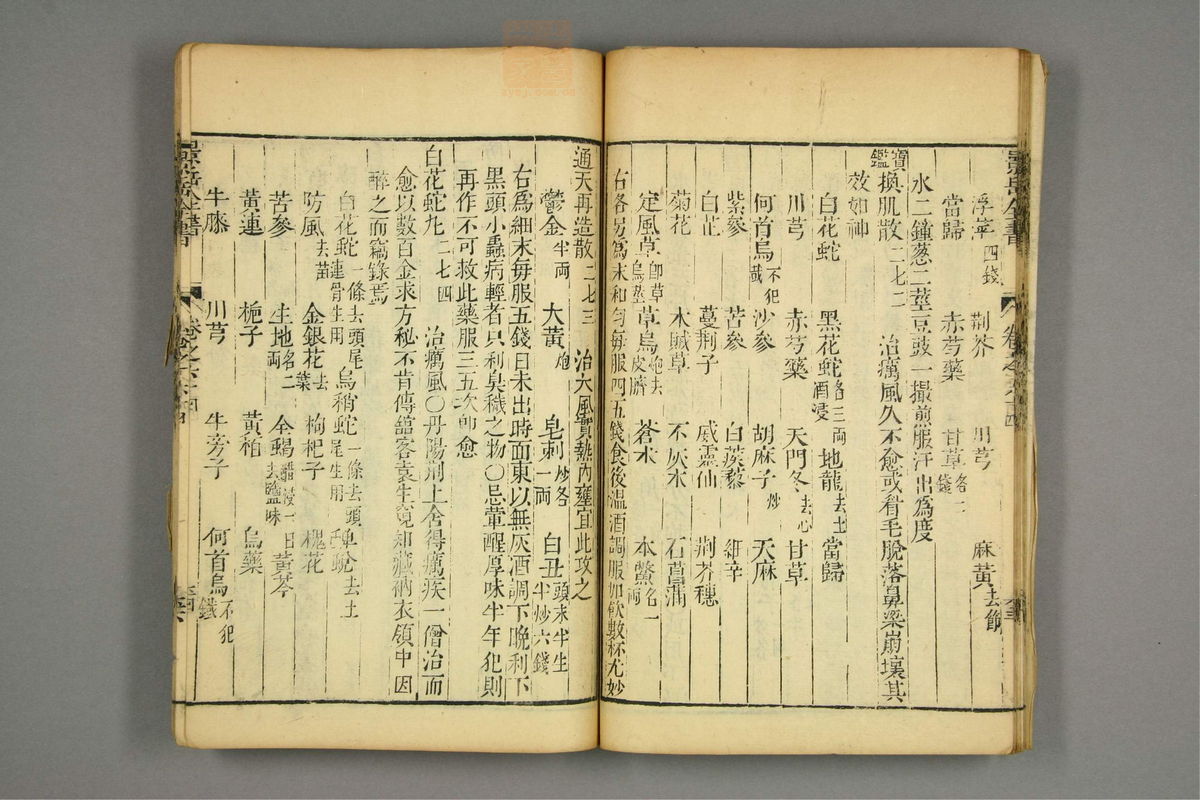 景岳全書 卷之六十四
浮萍四錢 荆芥 川芎 麻黄去節
當歸 赤芍藥 甘草各二錢
水二鐘葱二莖豆豉一撮煎服汗出爲度
寳鑑換肌散二七二 治癘風久不愈或眉毛脫落鼻梁崩壞其
效如神
白花蛇 黑花蛇各三兩酒浸 地龍去土 當歸
川芎 赤芍藥 天門冬去心 甘草
何首烏不犯鐵 沙參 胡麻子炒 天麻
紫參 苦參 白蒺藜 細辛
白芷 蔓荆子 威靈仙 荆芥穗
菊花 木賊草 不灰木 石菖蒲
定風草即草烏莖 草烏炮去皮臍 蒼朮 木鱉各一兩
右各另爲末和勻每服四五錢食後温酒調服加飲數杯尤妙
通天再造散二七三 治大風實熱內壅宜此攻之
鬱金半兩 大黄炮 皂刺炒各一兩 白丑頭末半生半炒六錢
右爲細末每服五錢日未出時面東以無灰酒調下晚利下
黑頭小蟲病輕者只利臭穢之物○忌葷醒厚味半年犯則
再作不可救此藥服三五次卽愈
白花蛇丸二七四 治癘風○丹陽荆上舍得癘疾一僧治而
愈以數百金求方秘不肯傳館客袁生竟知藏衲衣領中因
醉之而竊錄焉
白花蛇一條去頭尾連骨生用 烏稍蛇一條去頭尾生用 蟬蛻去土
防風去苗 金銀花去葉 枸杞子 槐花
苦參 生地各二兩 全蝎醋浸一日去鹽味 黄芩
黄連 梔子 黄栢 烏藥
牛膝 川芎 牛旁子 何首烏不犯鐵
景岳全書 卷之六十四